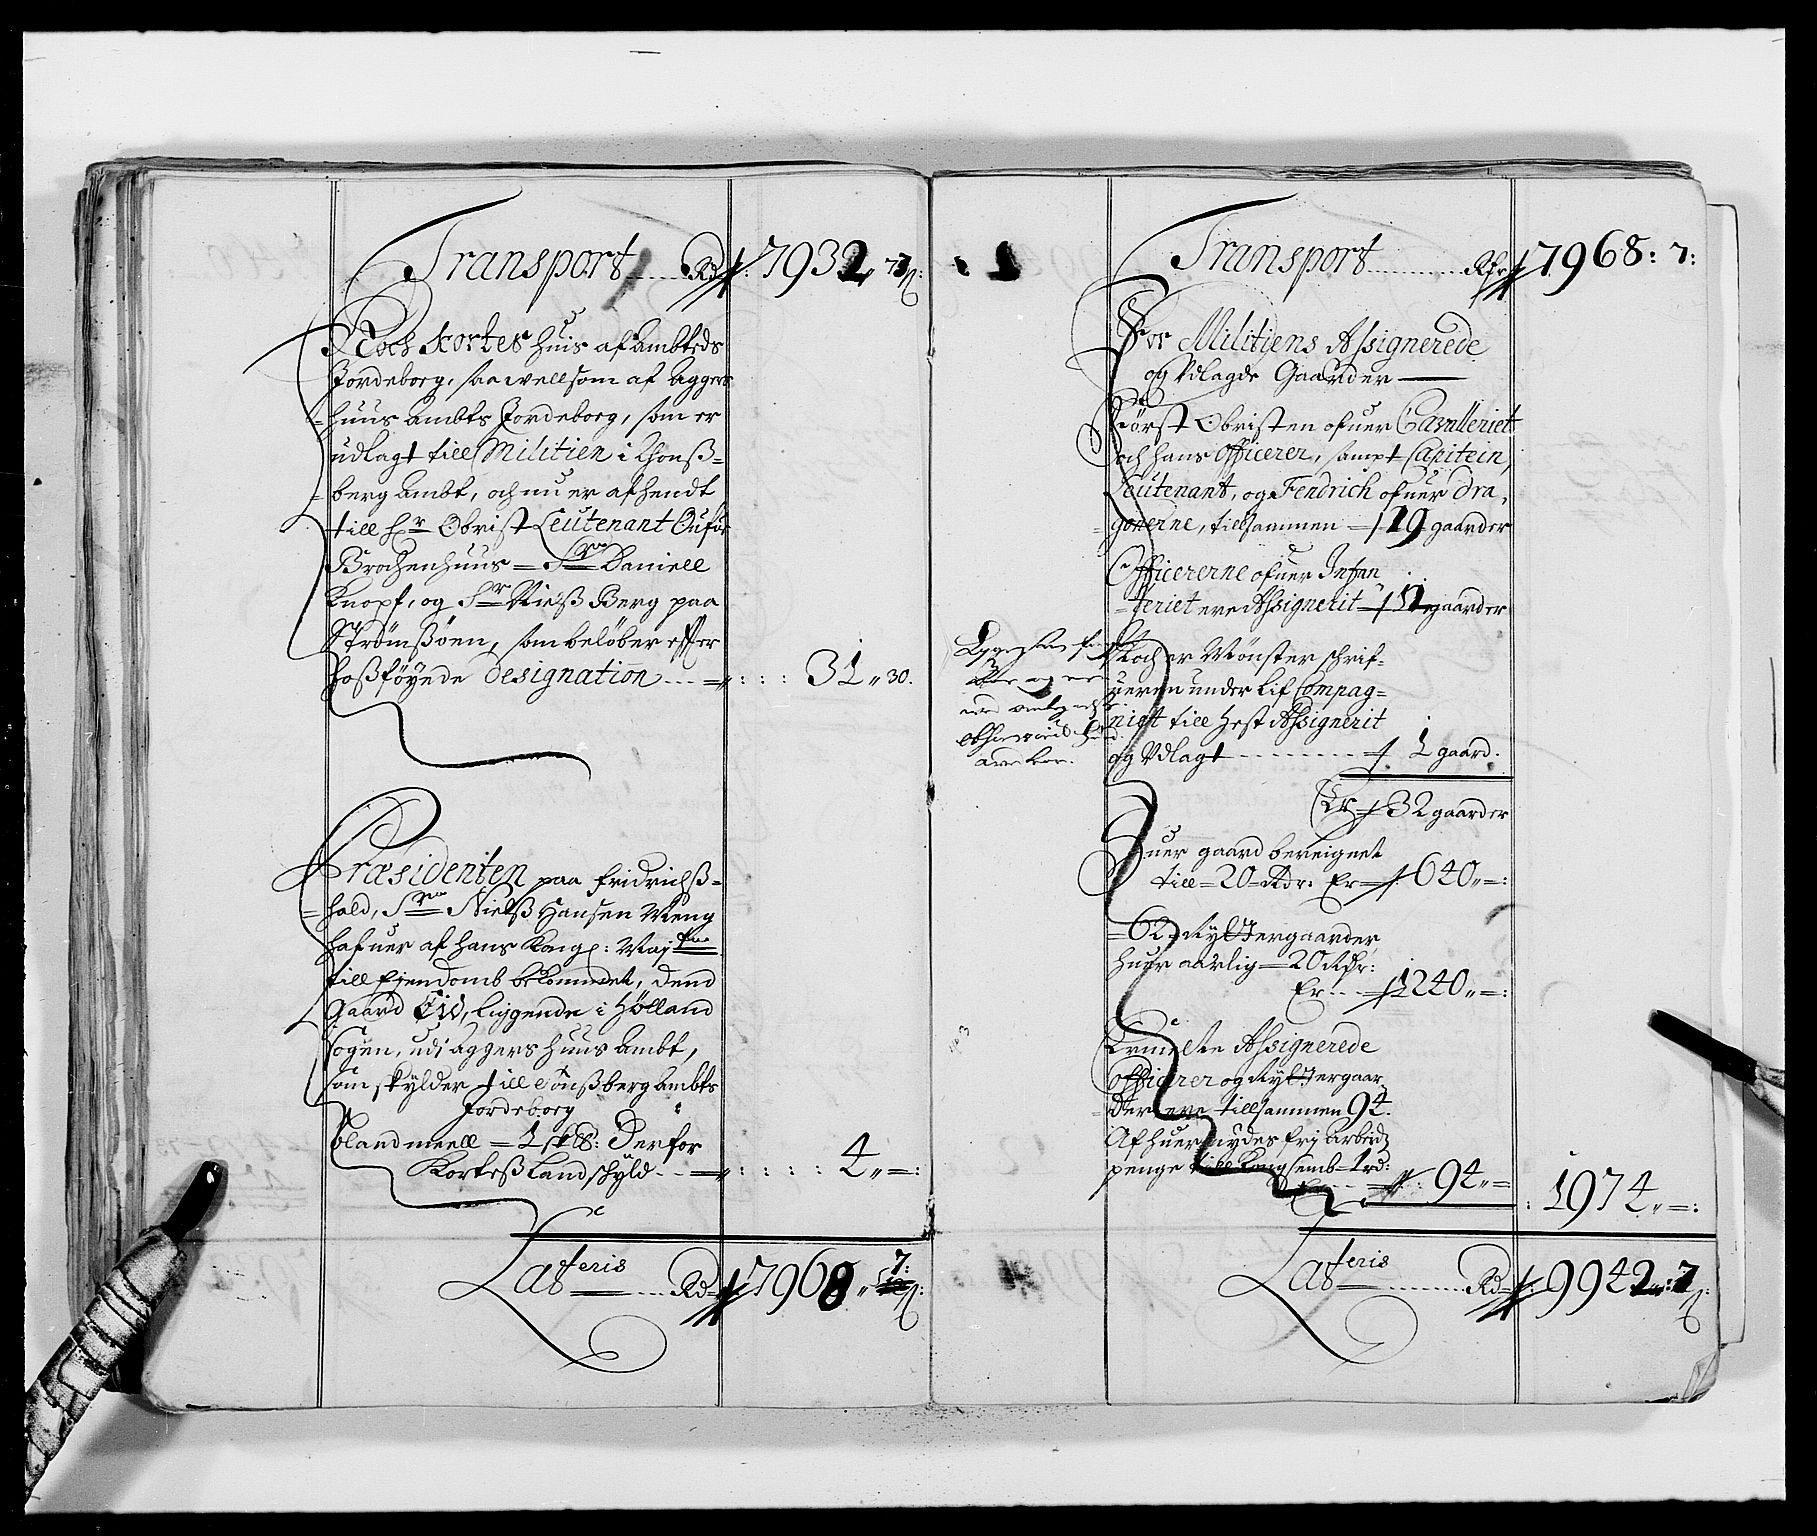 Transport Rdr 7932 „ 7
Noch kortes huis af ambteds
Jordeborg, saawellsom af Agger=
=huus Ambts Jordeborg, som er
udlagt till Militien i Thonß=
=berg Ambt, och nu er afhendt
till Hr Obrist Leutenant
Brochenhuus = Sr Daniell
Knopf, og Sr Nielß Berg paa
Strømßøen, som beløber efter
hoßføyede designation 31 „ 30.
Præsidenten paa Fridrichß=
=hald, Sr Nielß Hansen Meng
hafuer af hans Kongl: Maytt
till Ejendomb bekommet, dend
Gaard Eid, liggende i Hølland
Sogen, udi Aggershuus Ambt,
som skylder till Tønßberg Ambts
Jordeborg
blandmeell = 1 skll: Derfor
Korteß Landskyld 4 „ = :
Lateris Rdr 7968 „ 7:
Transport Rdr 7968: 7:
For Militiens Assignerede
og Udlagde Gaarder
Først Obristen ofuer Cavalleriet
och hans Officerer, sampt Capitein,
Leutenant, og Fendrich ofuer Dra,
gonerne, tillsammen 19 gaarder
Officererne ofuer Infan
teriet ere Assignerit gaarder
Noch er Mønster schrif=
ueren under Lif Compag=
niet till Hest Assignerit
og Udlagt 1 gaard.
Er 32 gaarder
Huer gaard bereignet
till = 20 Rdr: Er 640 „ = :
=62= Rytter gaarder,
huer aarlig = 20 Rdr:
Er 1240 „ = :
Ermelte Assignerede
Officerer og Rytter gaar
der ere tillsammen 94.
Af huer nydes frj arbeidz
penge till = 1 rd:
Er 94 „ = 1974 „ = :
Lateris Rdr 9942 : 7